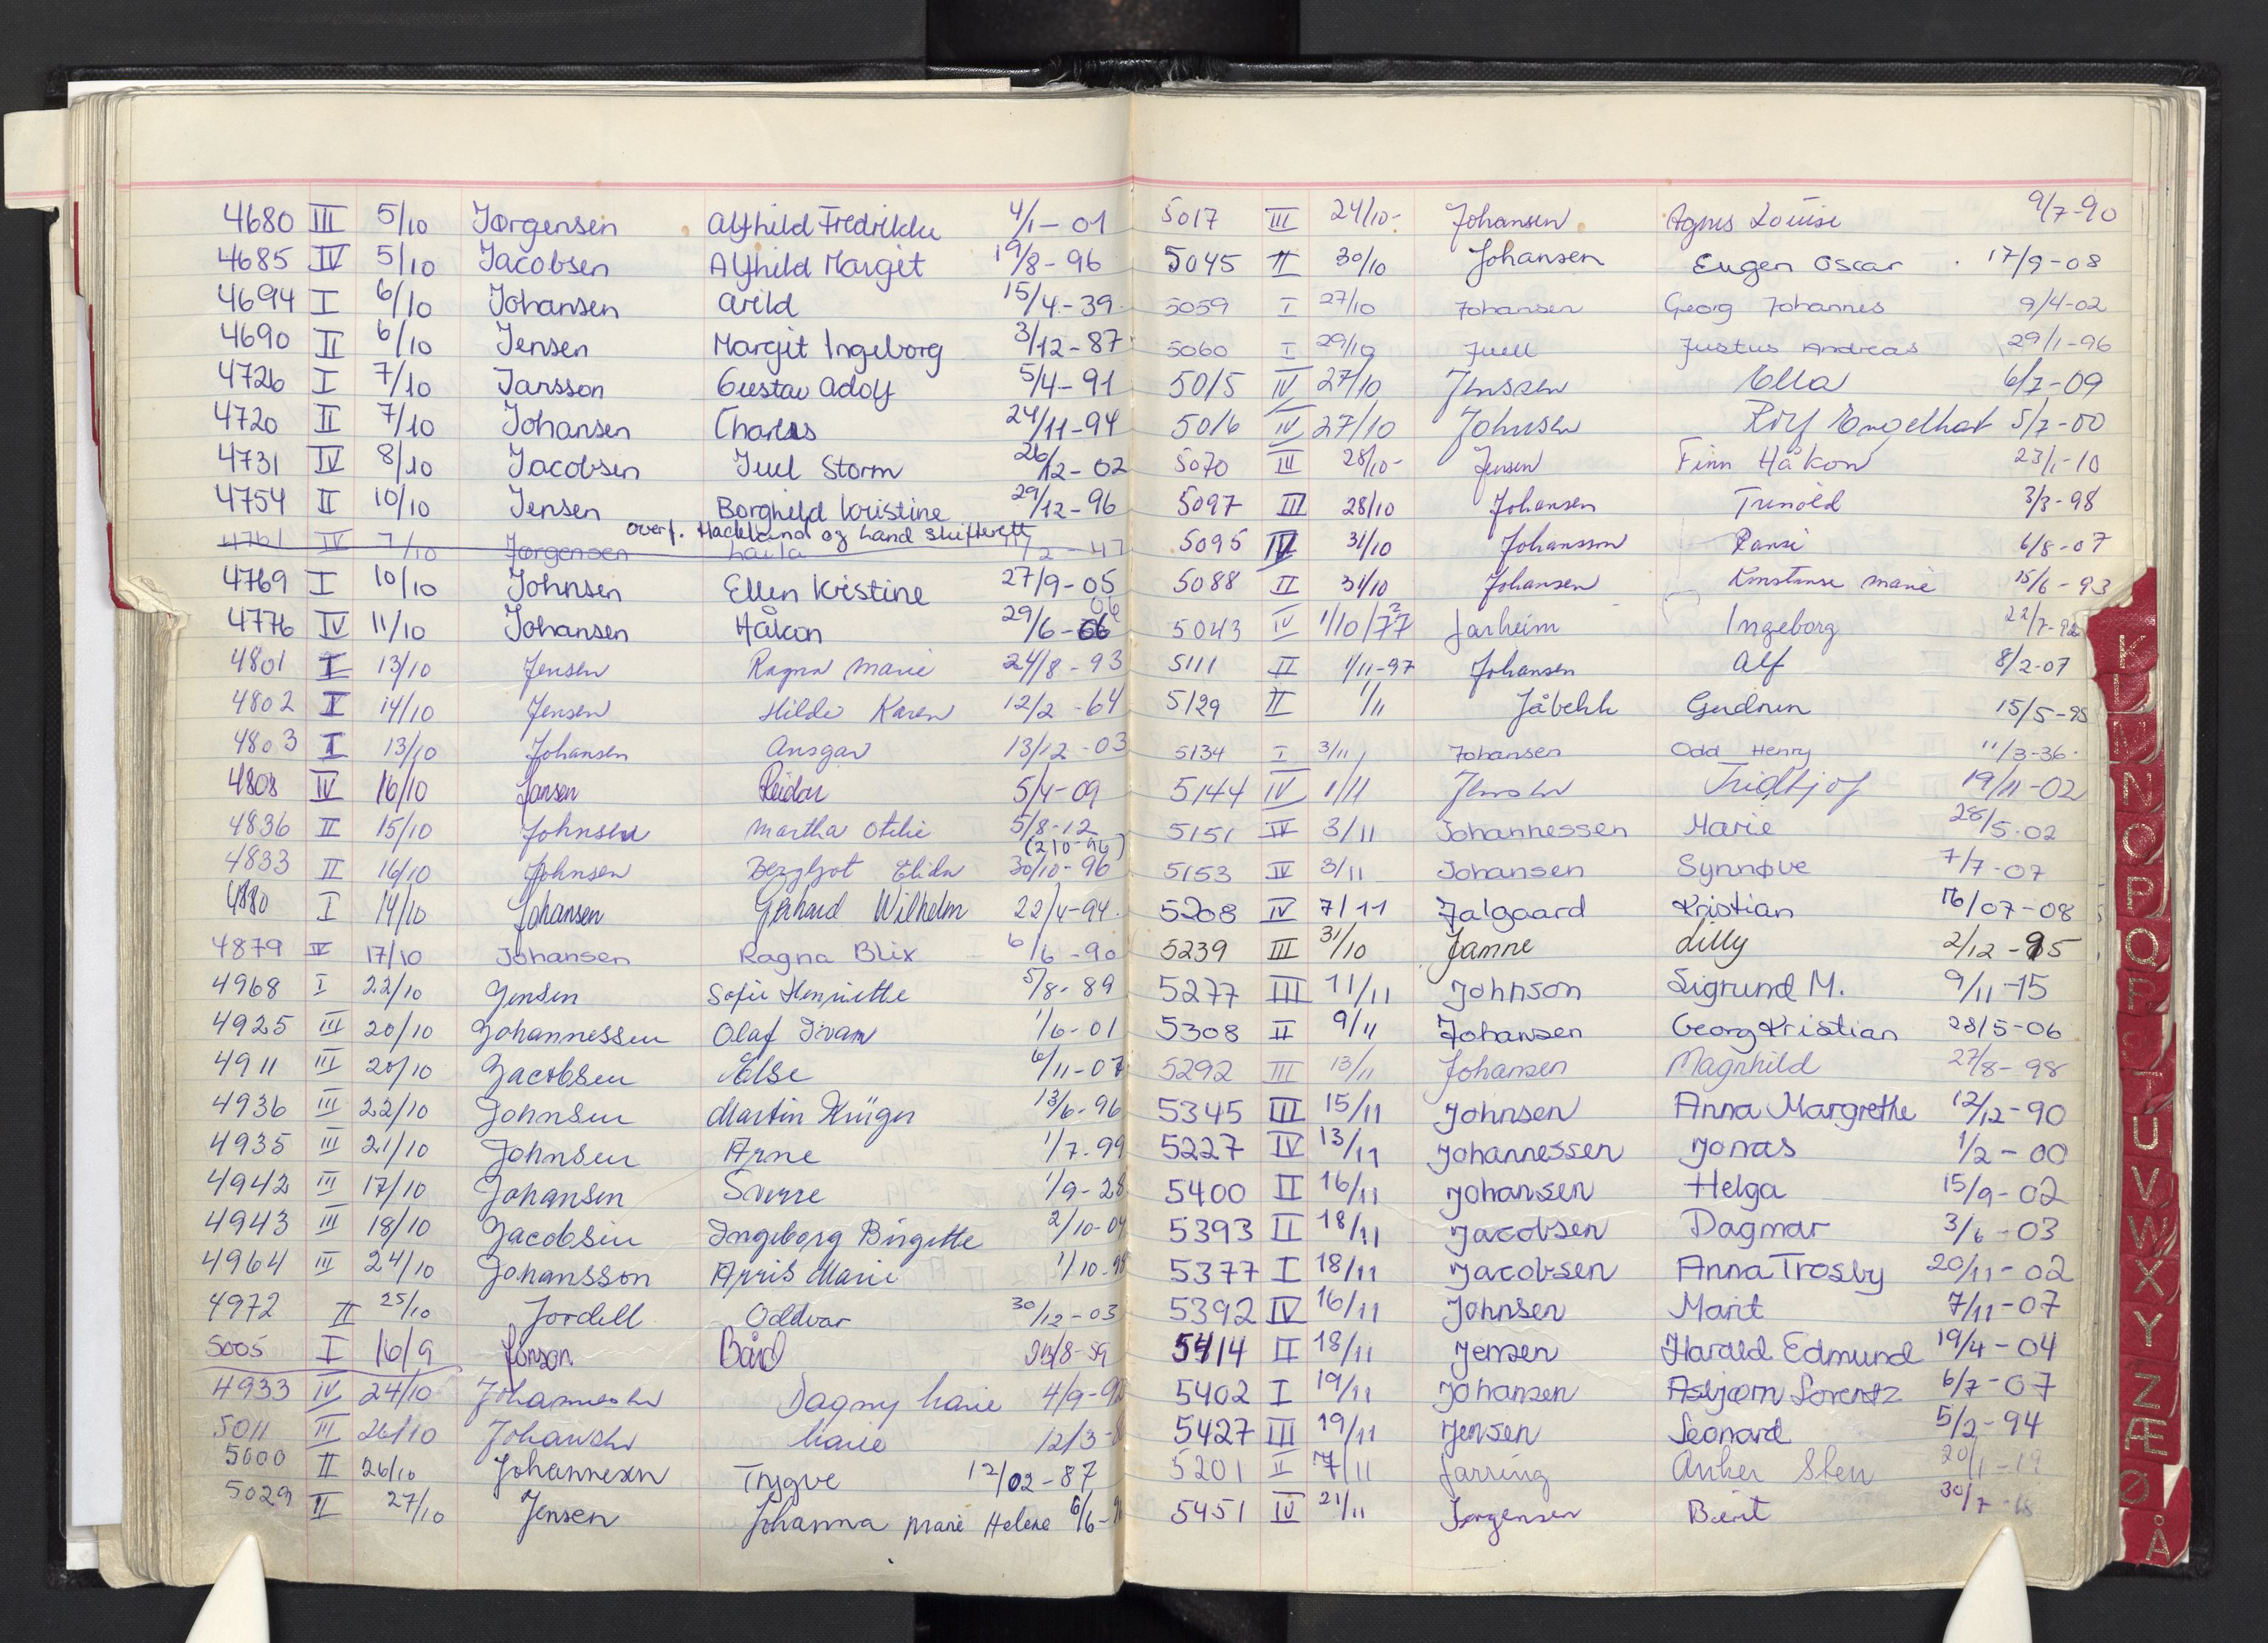 4680 III 5/10 Jørgensen Alfhild Fredrikke 4/1-01
4685 IV 5/10 Jacobsen Alfhild Margit 19/8-96
4694 I 6/10 Johansen Arild 15/4-39
4690 II 6/10 Jensen Margit Ingeborg 3/12-87
4726 I 7/10 Jansson Gustav Adolf 5/4-91
4720 II 7/10 Johansen Charles 24/11-94
4731 IV 8/10 Jacobsen Juul Storm 26/12-02
4754 II 10/10 Jensen Borghild Kristine 29/12-96
overf. Hadeland og Land skifterett
4761 IV 7/10 Jørgensen Laila /2-47
4769 I 10/10 Johnsen Ellen Kristine 27/9-05
06
4776 IV 11/10 Johansen Håkon 29/6-06
4801 I 13/10 Jensen Ragna Marie 24/8-93
4802 I 14/10 Jensen Hilde Karen 12/2-64
4803 I 13/10 Johansen Ansgar 13/12-03
4808 IV 16/10 Jansen Reidar 5/4-09
4836 II 15/10 Johnsen Martha Otilie 5/8-12
(210-96)
4833 II 16/10 Johnsen Bergljot Elida 30/10-96
4880 I 14/10 Johansen Gerhard Wilhelm 22/4-94
4879 IV 17/10 Johansen Ragna Blix 6/6-90
4968 I 22/10 Jensen Sofie Henriette 5/8-89
4925 III 20/10 Johannessen Olaf Ivan 1/6-01
4911 III 20/10 Jacobsen Else 6/11-07
4936 III 22/10 Johnsen Martin Krüger 13/6-96
4935 III 21/10 Johnsen Arne 1/7-99
4942 III 17/10 Johansen Sverre 1/9-28
4943 III 18/10 Jacobsen Ingeborg Birgitte 2/10-04
4964 III 24/10 Johansson Marie 1/10-98
4972 II 25/10 Jordell Oddvar 30/12-03
5005 I 16/9 Jonson Bård /8-59
4933 IV 24/10 Johannesen Dagny Marie 4/9-
5011 III 26/10 Johansen Marie 12/3-
5000 II 26/10 Johannesen Trygve 12/02-87
5029 II 27/10 Jensen Johanna Marie Helene 6/6-
5017 III 24/10- Johansen Agnes Louise 9/7-90
5045 II 30/10 Johansen Eugen Oscar 17/9-08
5059 I 27/10 Johansen Georg Johannes 9/4-02
5060 I 29/10 Juell Justus Andreas 29/1-96
5015 IV 27/10 Jenssen Ella 6/7-09
5016 IV 27/10 Johnsen Rolf Engelhart 5/7-00
5070 III 28/10- Jensen Finn Håkon 23/1-10
5097 III 28/10 Johansen 3/3-98
5095 IV 31/10 Johansson Ransi 6/8-07
5088 II 31/10 Johansen Konstanse Marie 15/6-93
5043 IV 1/10/77 Jarheim Ingeborg 22/7-92
5111 II 1/11-97 Johansen Alf 8/2-07
5129 II 1/11 Jåbekk Gudrun 15/5-95
5134 I 3/11 Johansen Odd Henry 11/3-36
5144 IV 1/11 Jensen Fridtjof 19/11-02
5151 IV 3/11 Johannessen Marie 28/5-02
5153 IV 3/11 Johansen Synnøve 7/7-07
5208 IV 7/11 Jalgaard Kristian 16/07-08
5239 III 31/10 Janne Lilly 2/12-95
5277 III 11/11 Johnson Sigrund M. 9/11-15
5308 II 9/11 Johansen Georg Kristian 28/5-06
5292 III 13/11 Johansen Magnhild 27/8-98
5345 III 15/11 Johnsen Anna Margrethe 12/12-90
5227 IV 13/11 Johannessen Jonas 1/2-00
5400 II 16/11 Johansen Helga 15/9-02
5393 II 18/11 Jacobsen Dagmar 3/6-03
5377 I 18/11 Jacobsen Anna Trosby 20/11-02
5392 IV 16/11 Johnsen Marit 7/11-07
5414 II 18/11 Jensen Harald Edmund 19/4-04
5402 I 19/11 Johansen Asbjørn Lorentz 6/7-07
5427 III 19/11 Jensen Leonard 5/2-94
5201 II 7/11 Jarring Anker Sten 20/1-19
5451 IV 21/11 Jørgensen Berit 30/7-18
K
N
O
P
Q
R
S
T
U
V
W
X
Y
Z
Æ
Ø
Å